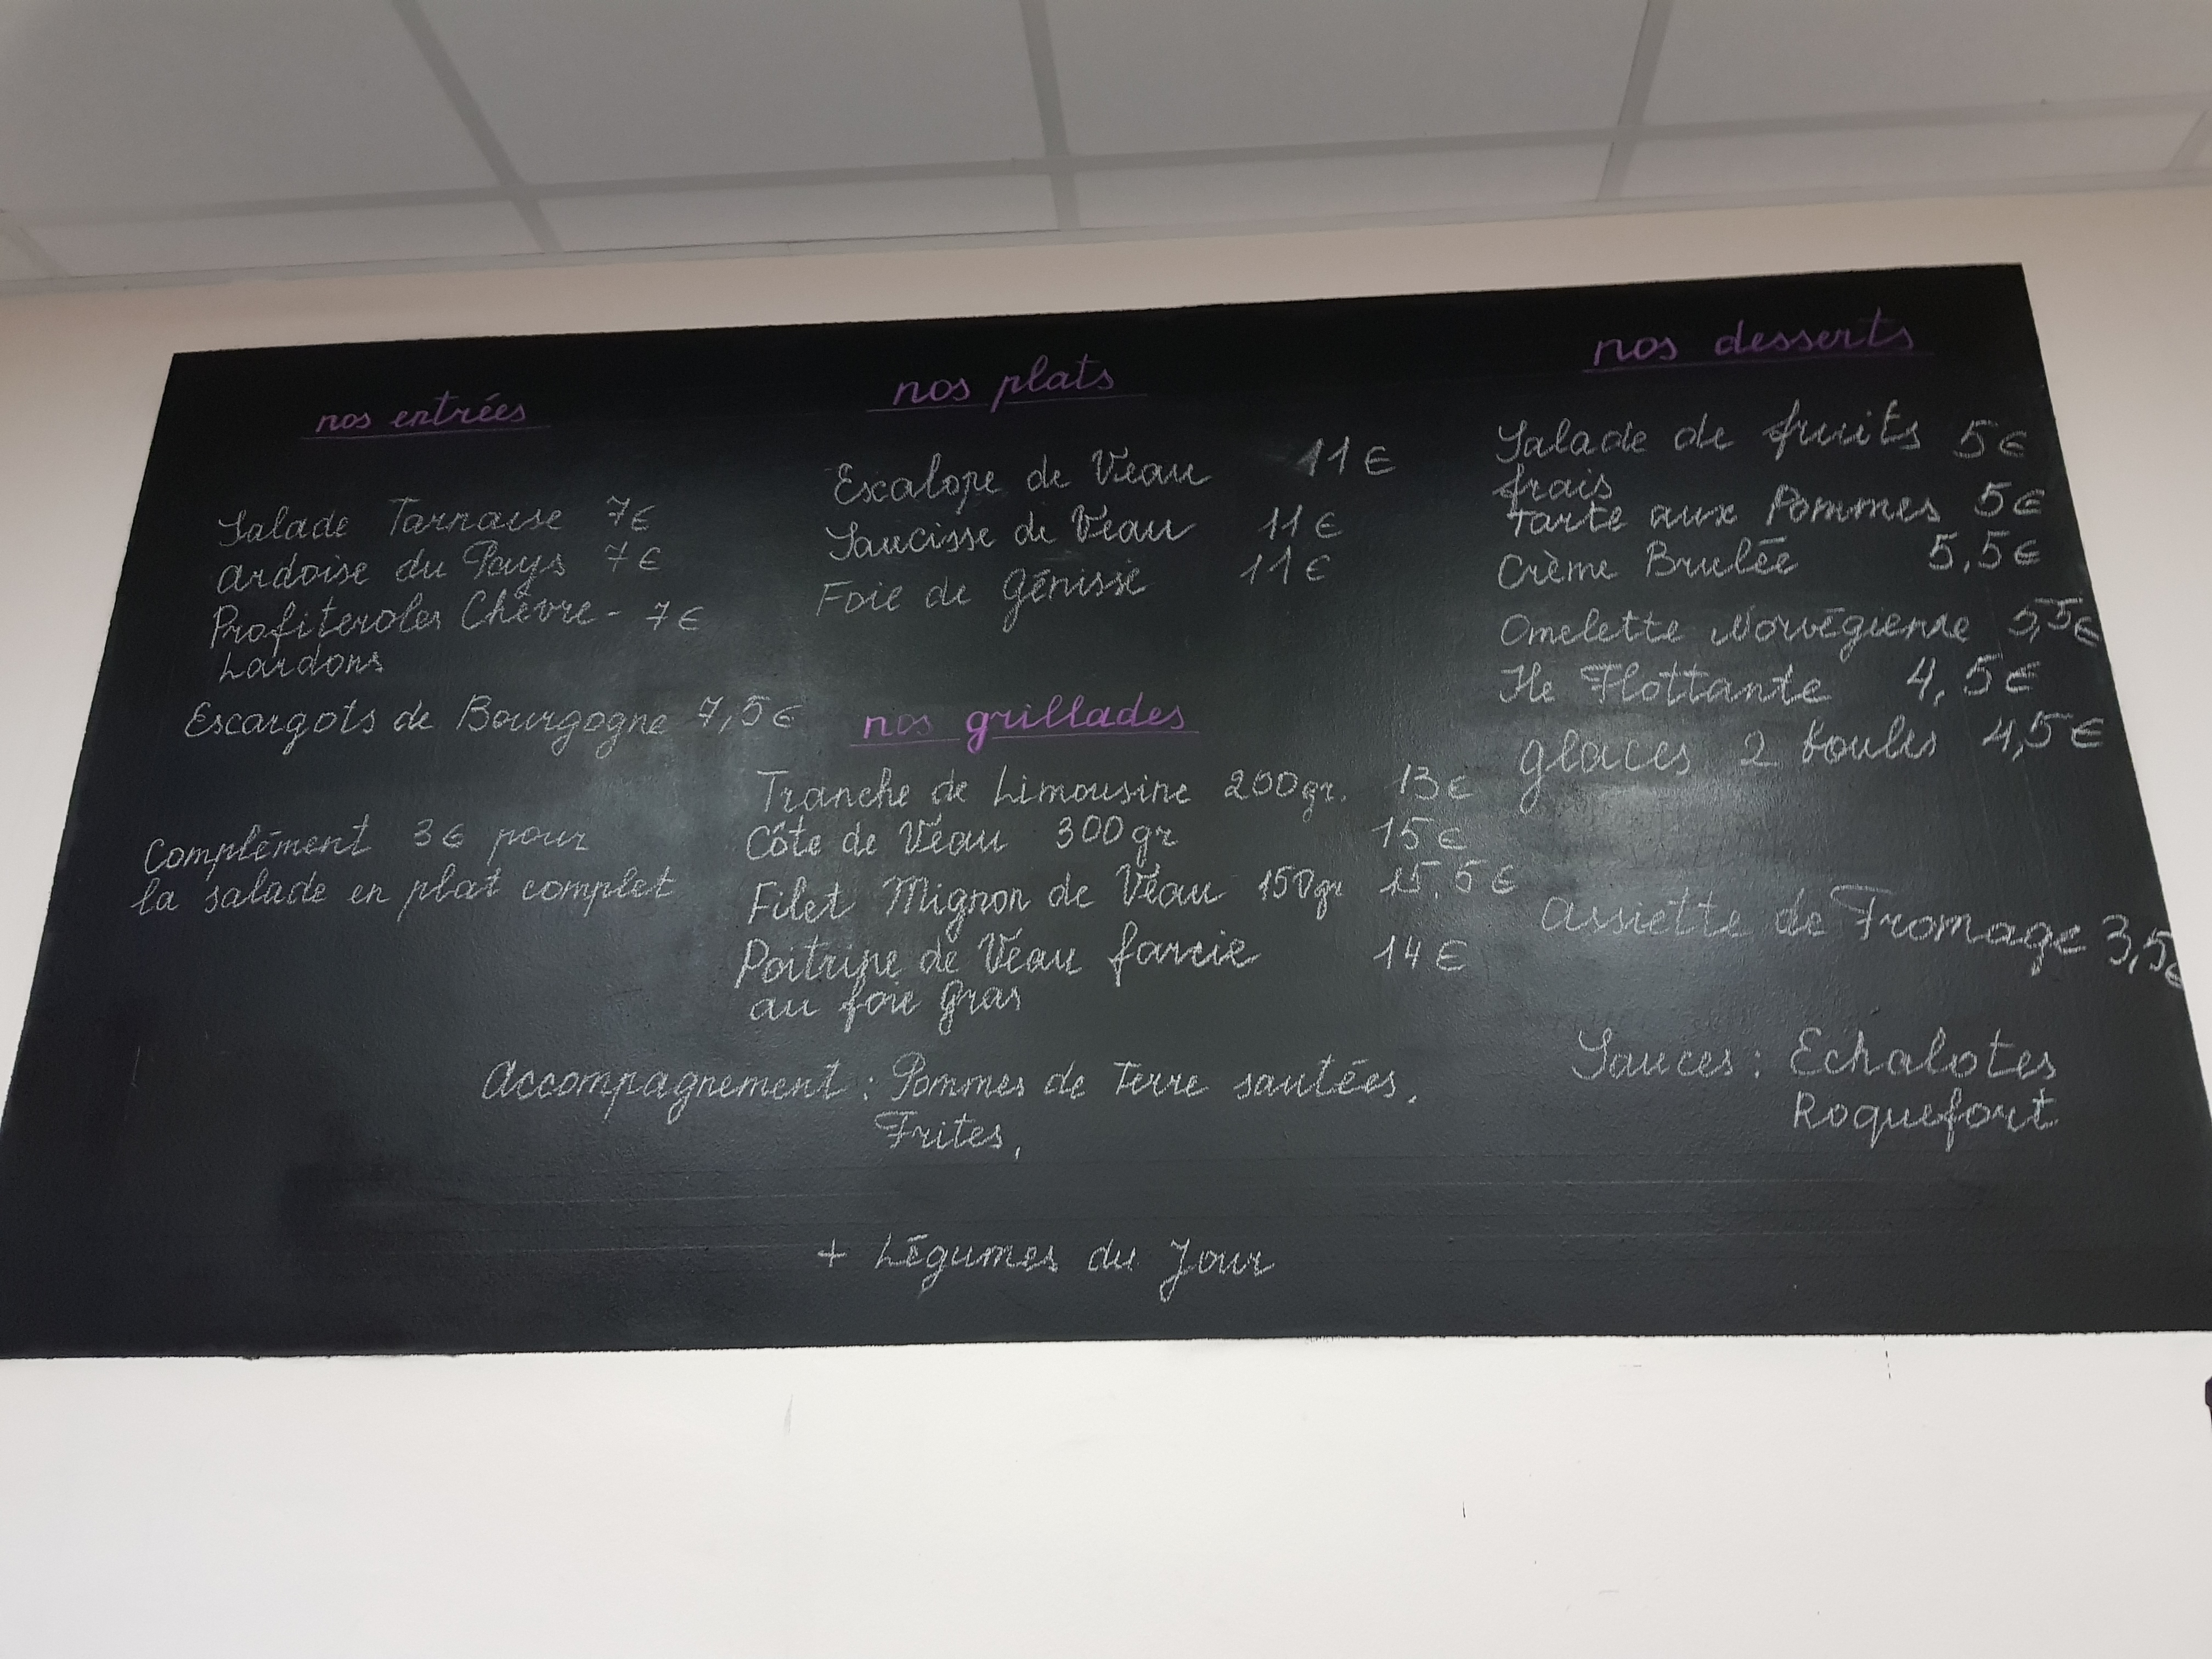 nos entrées
Salade Tarnaise 7€
Ardoise du Pays 7€
Profiteroles Chèvre - 7€
Lardons
Escargots de Bourgogne 7,5€
Complément 3€ pour
la salade en plat complet
nos plats
Escalope de Veau 11€
Saucisse de Veau 11€
Foie de Génisse 11€
nos grillades
Tranche de Limousine 200gr. 13€
Côte de Veau 300gr 15€
Filet Mignon de Veau 150gr 15,5€
Poitrine de Veau farcie 14€
au foie Gras
Accompagnement : Pommes de Terre sautées,
Frites,
+ Légumes du Jour
nos desserts
Salade de fruits 5€
frais
Tarte aux Pommes 5€
Crème Brulée 5,5€
Omelette Norvégienne 5,5€
Ile Flottante 4,5€
glaces 2 boules 4,5€
Assiette de Fromage 3,5€
Sauces : Echalotes
Roquefort